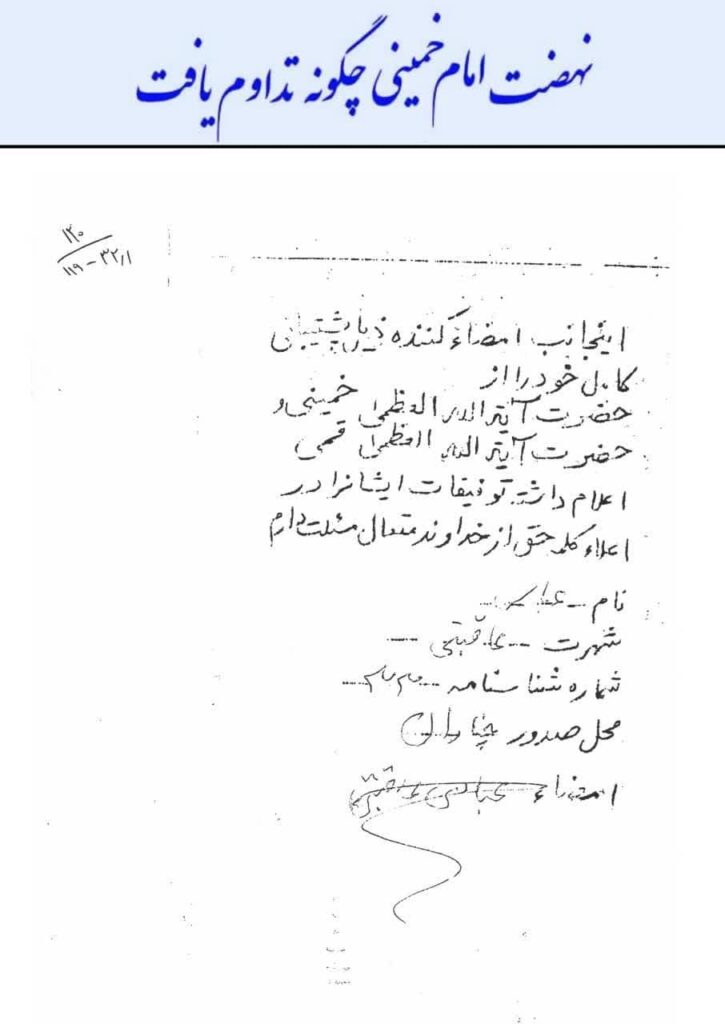 نهضت امام خمینی چگونه تداوم یافت
۱۲۰
۱۱۹-۳۲/۱
اینجانب امضاء کننده ذیل پشتیبانی
کامل خود را از
حضرت آیة الله العظمی خمینی و
حضرت آیة الله العظمی قمی
اعلام داشته توفیقات ایشانرا در
اعلاء کلمه حق از خداوند متعال مسئلت دارم
نام -- عباس --
شهرت -- عاقبتی --
شماره شناسنامه --
محل صدور
امضاء عباس عاقبتی